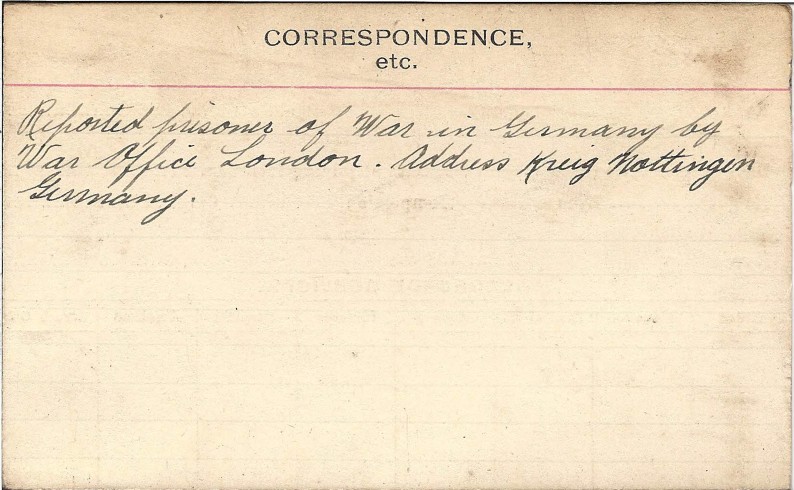 CORRESPONDENCE,
etc.
Reported prisoner of War in Germany by
War Office London. Address Kreig Nottingen
Germany.